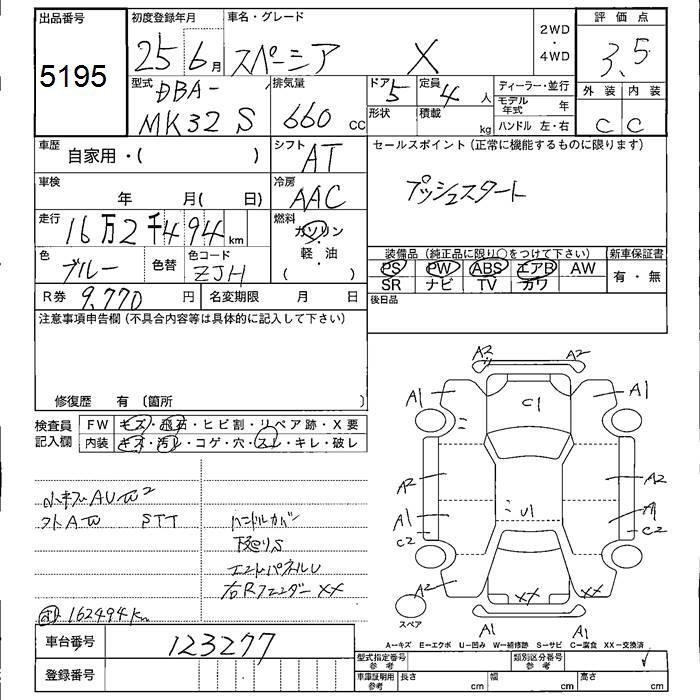 出品番号
5195
初度登録年月
25 6月
車名・グレード
スペーシア X
2WD
・
4WD
評価点
3.5
外装 内装
C C
型式
DBA-
MK32S
排気量
660 cc
ドア
5
定員
4人
形状
積載
kg
ディーラー・並行
モデル年式 年
ハンドル 左・右
車歴
自家用・( )
シフト
AT
セールスポイント(正常に機能するものに限ります)
プッシュスタート
車検
年 月( 日)
冷房
AAC
走行
16万2千494km
燃料
ガソリン
・
軽・油
( )
色
ブルー
色替
色コード
ZJH
装備品(純正品に限り○をつけて下さい)
PS PW ABS エアB AW
SR ナビ TV カワ
新車保証書
有・無
R券 9,770円
名変期限 月 日
後日品
注意事項申告欄(不具合内容等は具体的に記入して下さい)
修復歴 有(箇所 )
検査員
記入欄
FW キズ・飛石・ヒビ割・リペア跡・X要
内装 キズ・汚レ・コゲ・穴・スレ・キレ・破レ
小キズAUW2
STT
ハンドルカバー
下廻りS
エンドパネルU
右RフェンダーXX
162494km
A2
A2
A1
A1
C1
A2
A2
A1
A1
C2
C2
U1
A2
XX
XX
スペア
A1
A1
A-キズ E-エクボ U-凹み W-補修跡 S-サビ C-腐食 XX-交換済
車台番号
123277
登録番号
型式指定番号
参考
類別区分番号
参考
車庫証明用
参考
長さ cm
幅 cm
高さ cm